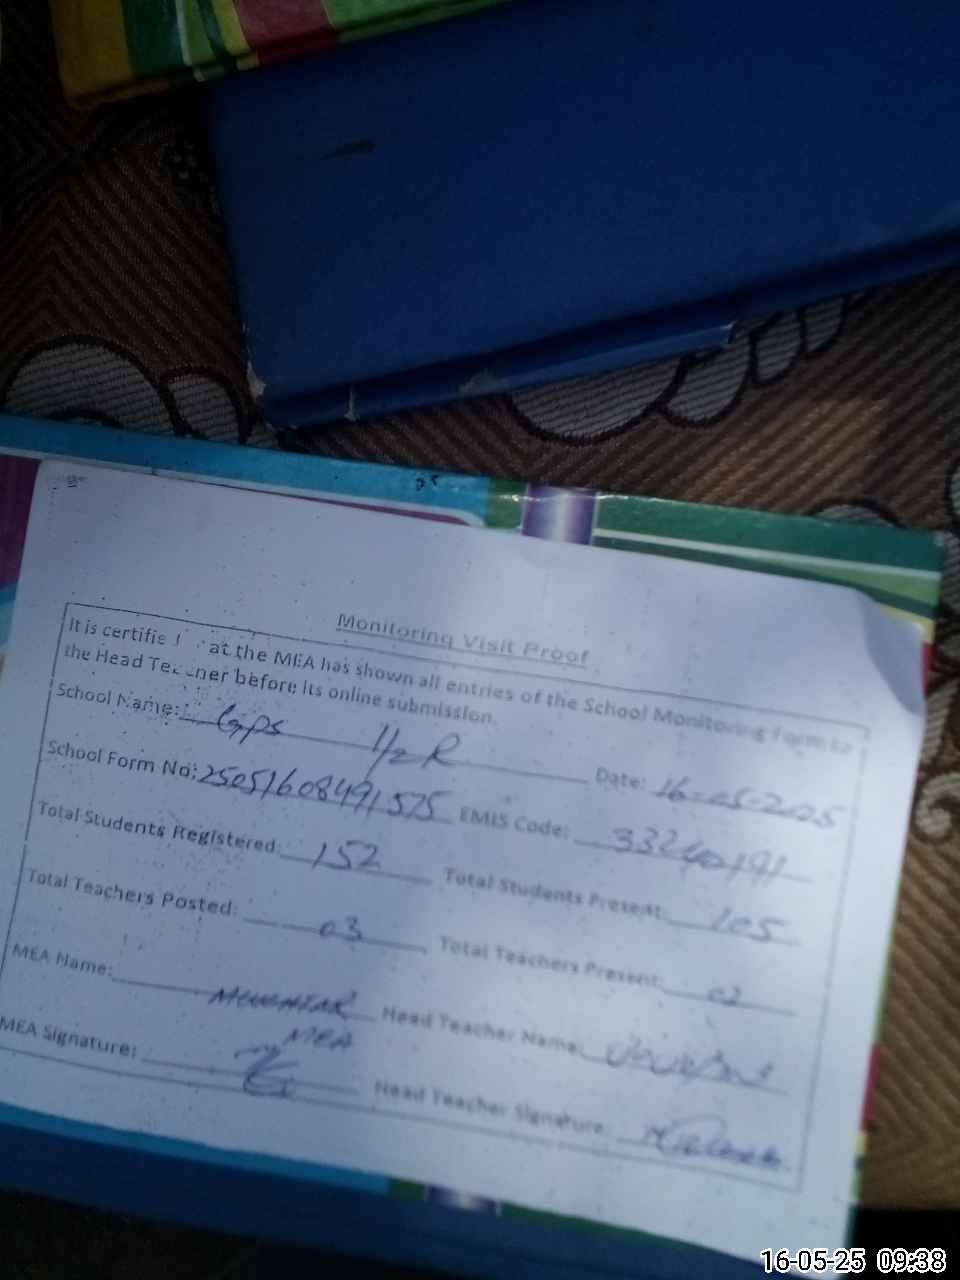 Monitoring Visit Proof
It is certifie at the MEA has shown all entries of the School Monitoring Form to
the Head Teacher before its online submission.
School Name: Gps 1/2R Date: 16-05-2025
School Form No: 25051608491575 EMIS Code: 33240191
Total Students Registered: 152 Total Students Present: 105
Total Teachers Posted: 03 Total Teachers Present: 02
MEA Name: Head Teacher Name:
MEA
MEA Signature: Head Teacher Signature:
16-05-25 09:38